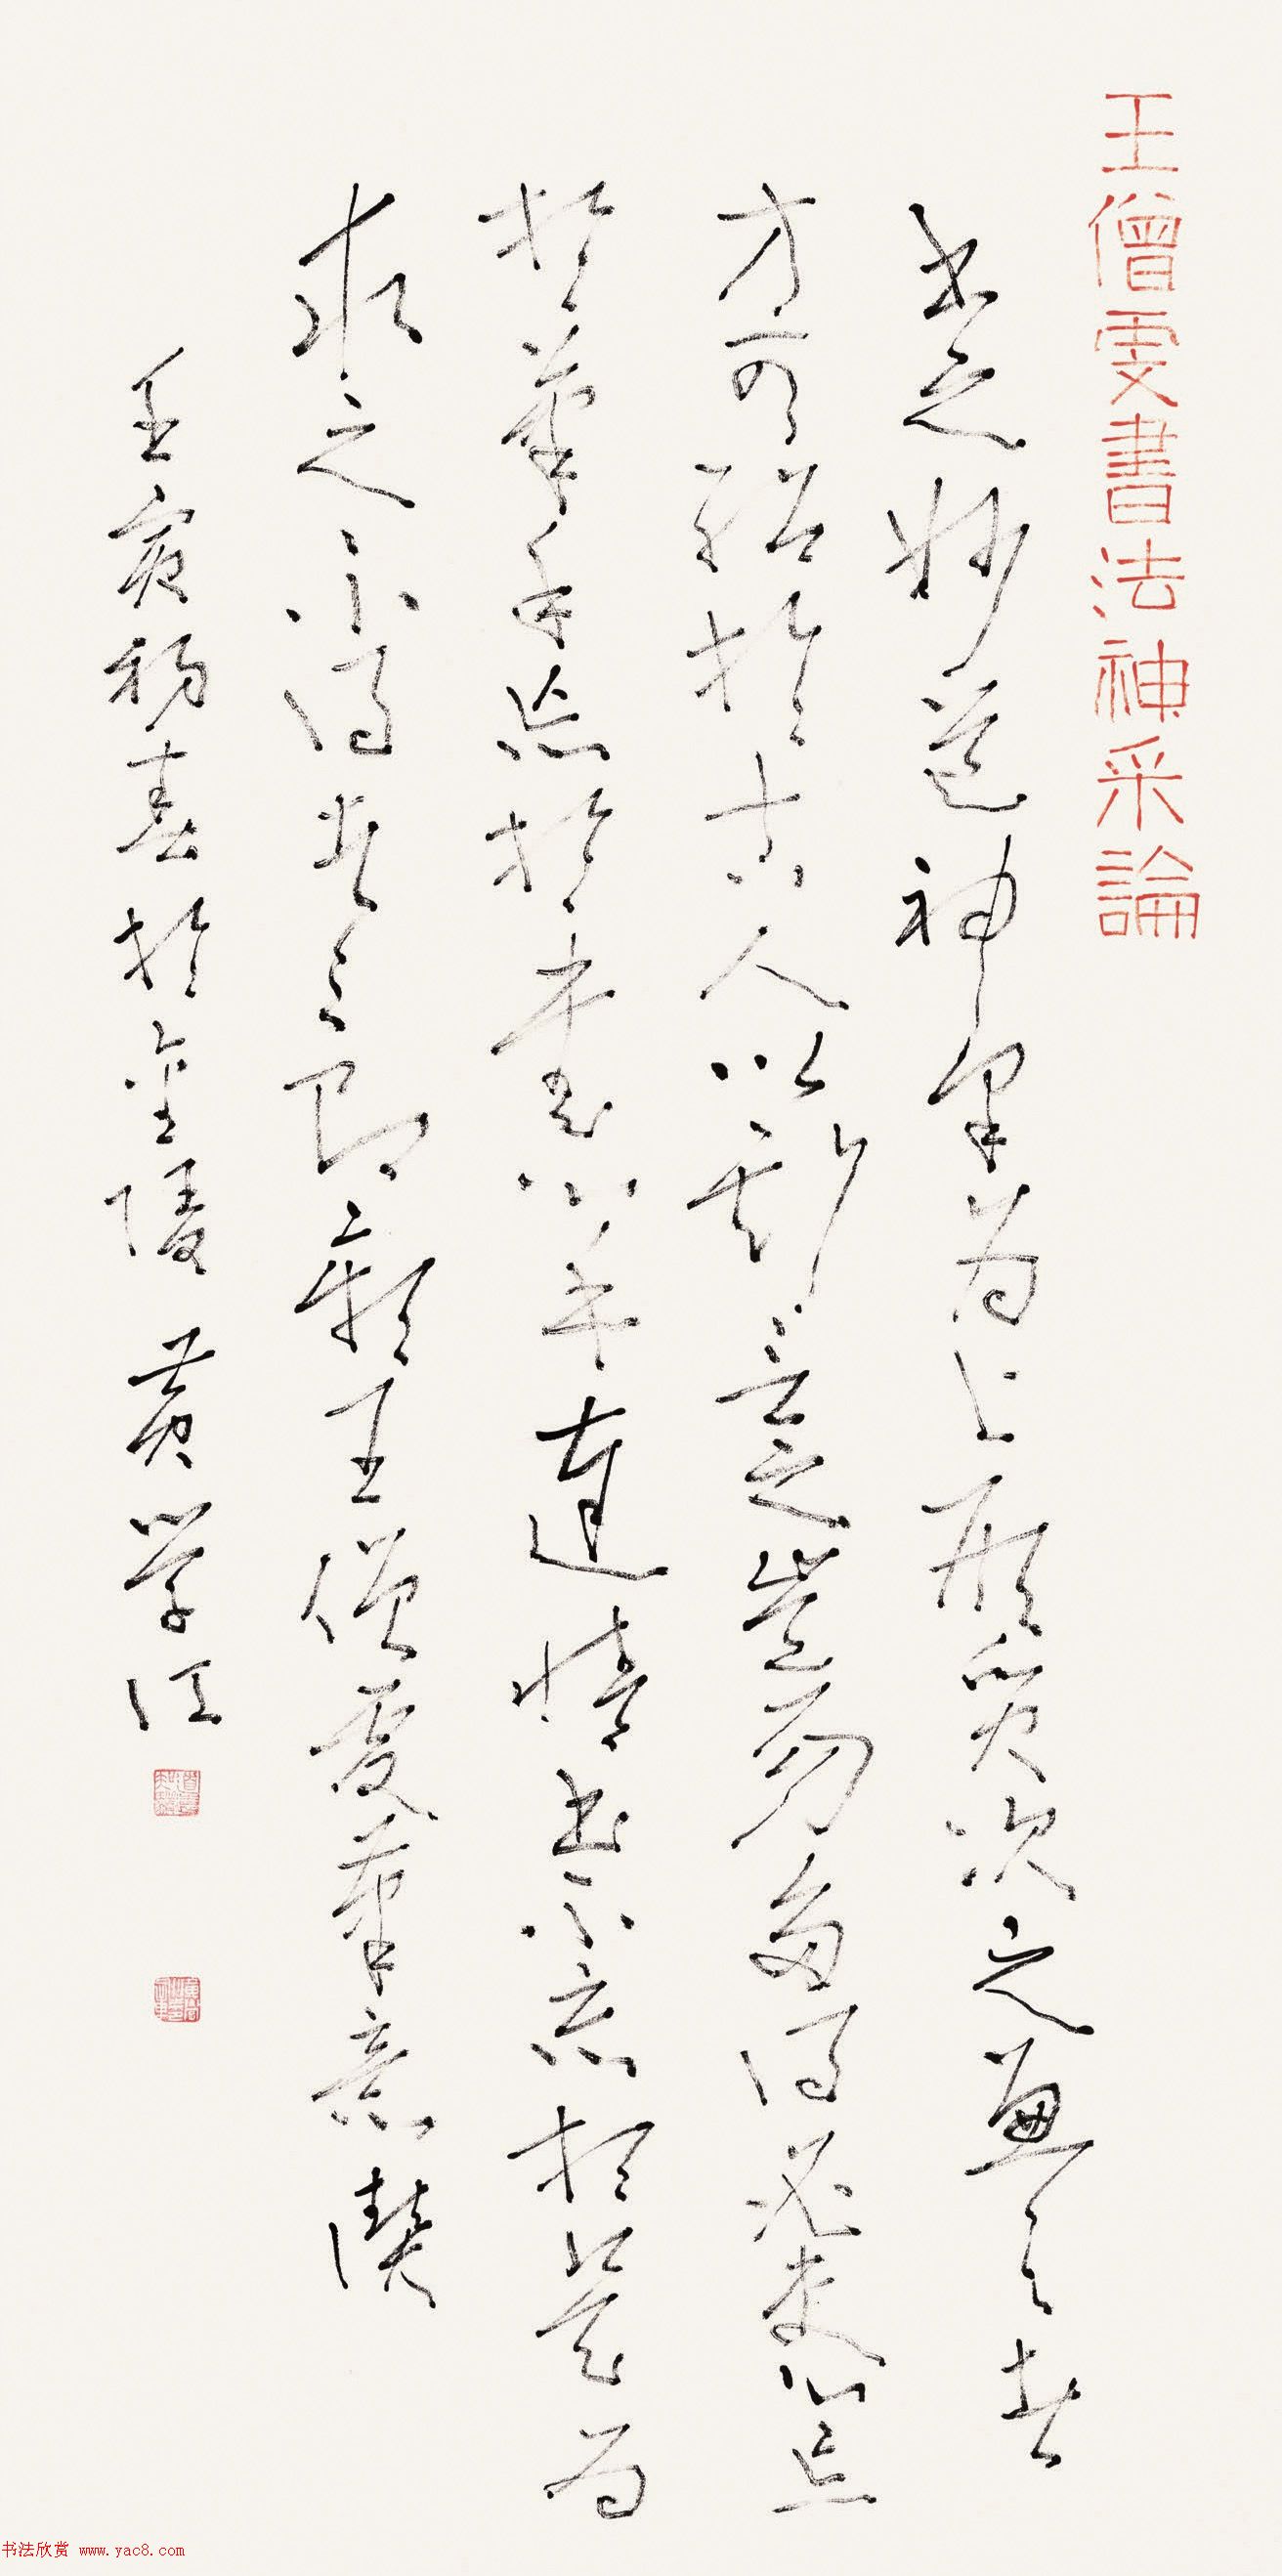 王僧虔書法神采論
書之妙道神采为上形質次之兼之者
方可紹於古人以斯言之豈易多得必使心忘
於筆手忘於書心手達情書不忘想是为
求之不得考之即彰王僧虔筆意讚
壬寅初春於金陵 黄學江
书法欣赏 www.yac8.com